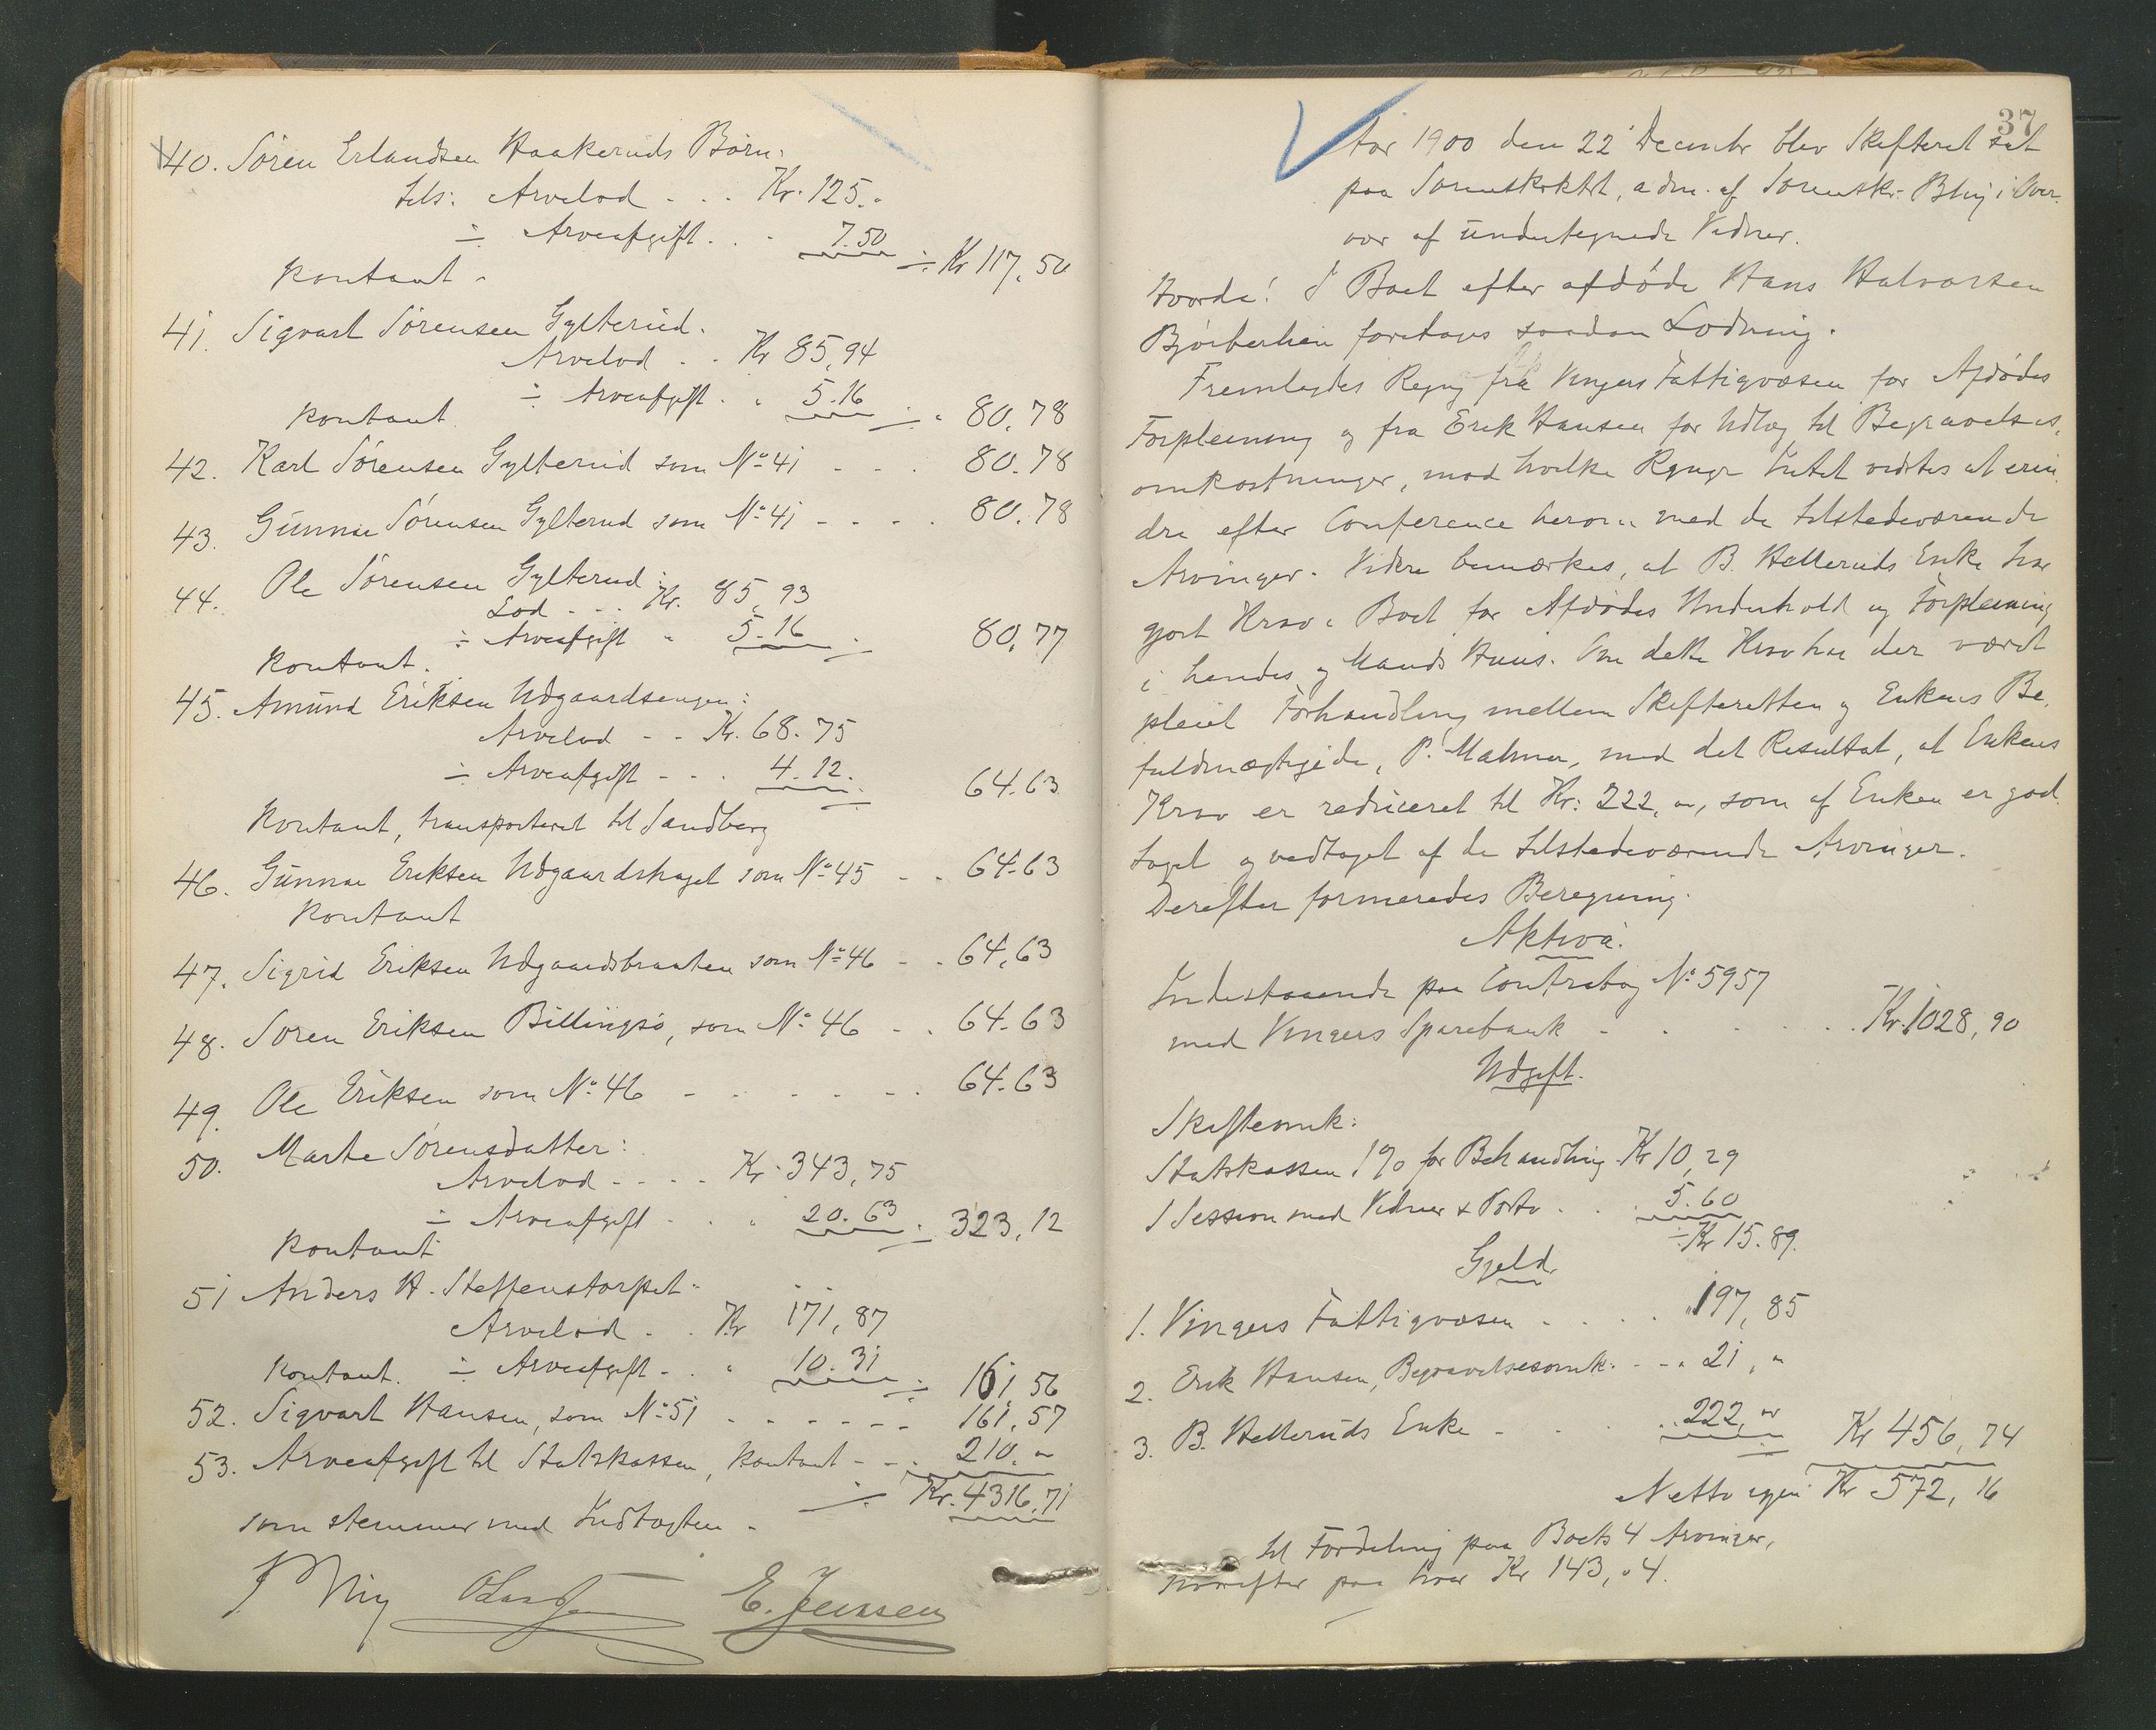 40. Søren Erlandsen Haakeruds Børn:
tils: Arvelod - . . Kr. 125.-
÷ Arveafgift . . - 7.50
kontant - ÷ Kr 117,50
41. Sigvart Sørensen Gylterud.
Arvelod . . Kr 85,94
÷ Arveafgift . . 5.16
kontant 80.78
42. Karl Sørensen Gylterud som No 41 - - . 80.78
43. Gunnar Sørensen Gylterud som No 41 - - . . 80.78
44. Ole Sørensen Gylterud:
Lod - . . Kr. 85,93
÷ Arveafgift " 5.16
kontant. 80,77
45. Amund Eriksen Udgaardsengen:
Arvelod - - Kr. 68.75
÷ Arveafgift - - . 4.12.
64.63
kontant, transporteret til Sandberg
46. Gunnar Eriksen Udgaardshaget som No 45 - . 64.63
kontant
47. Sigrid Eriksen Udgaardsbraaten som No 46 - . 64,63
48. Søren Eriksen Billingsø, som No 46 - . 64.63
49. Ole Eriksen som No 46 - - - - - . 64.63
50. Marte Sørensdatter:
Arvelod - - . . Kr. 343,75
÷ Arveafgift - . . 20.63
323,12
kontant
51 Anders H. Steffenstorpet:
Arvelod . . Kr 171,87
kontant. ÷ Arveafgift - . " 10.31
161,56
52. Sigvart Hansen, som No 51 - - - - - - 161,57
53. Arveafgift til Statskassen, kontant - - . 210.-
Kr. 4316,71
som stemmer med Indtægten.
E. Jenssen
37
Aar 1900 den 22 Decembr blev Skifteret sat
paa Sorenskrktrt, adm. af Sorenskr. Bhij i Over-
vær af undertegnede Vidner.
Hvorda! I Boet efter afdøde Hans Halvorsen
Bjørberhien foretages saadan Lodning.
Fremlagdes Regng fra Vingers Fattigvæsen for Afdødes
Forpleining og fra Erik Hansen for Udlæg til Begravelses-
omkostninger, mod hvilke Rgngr Intet vidstes at erin-
dre efter Conference herom med de tilstedeværende
Arvinger. Videre bemærkes, at B. Helleruds Enke har
gjort Krav i Boet for Afdødes Underhold og Forpleining
i hendes og Mands Huus. Om dette Krav har der været
pleiet Forhandling mellem Skifteretten og Enkens Be-
fuldmægtigede, P. Malmer, med det Resultat, at Enkens
Krav er reduceret til Kr: 222,-, som af Enken er god-
taget og vedtaget af de tilstedeværende Arvinger.
Derefter formeredes Beregning.
Aktiva.
Indestaaende paa Contrabog No 5957
med Vingers Sparebank - - - - . . Kr. 1028,90
Udgift.
Skifteomk:
Statskassen 1% for Behandling Kr 10,29
1 Session med Vidner & Porto . . 5.60
÷ Kr 15.89.
Gjeld.
1. Vingers Fattigvæsen - . . . . " 197,85
2. Erik Hansen, Begravelsesomk. - - . 21,"
3. B. Hellerud's Enke - . . . 222,- Kr 456,74
Netto igjen Kr 572,16
til Fordeling paa Boets 4 Arvinger,
hvorefter paa hver Kr 143,04.